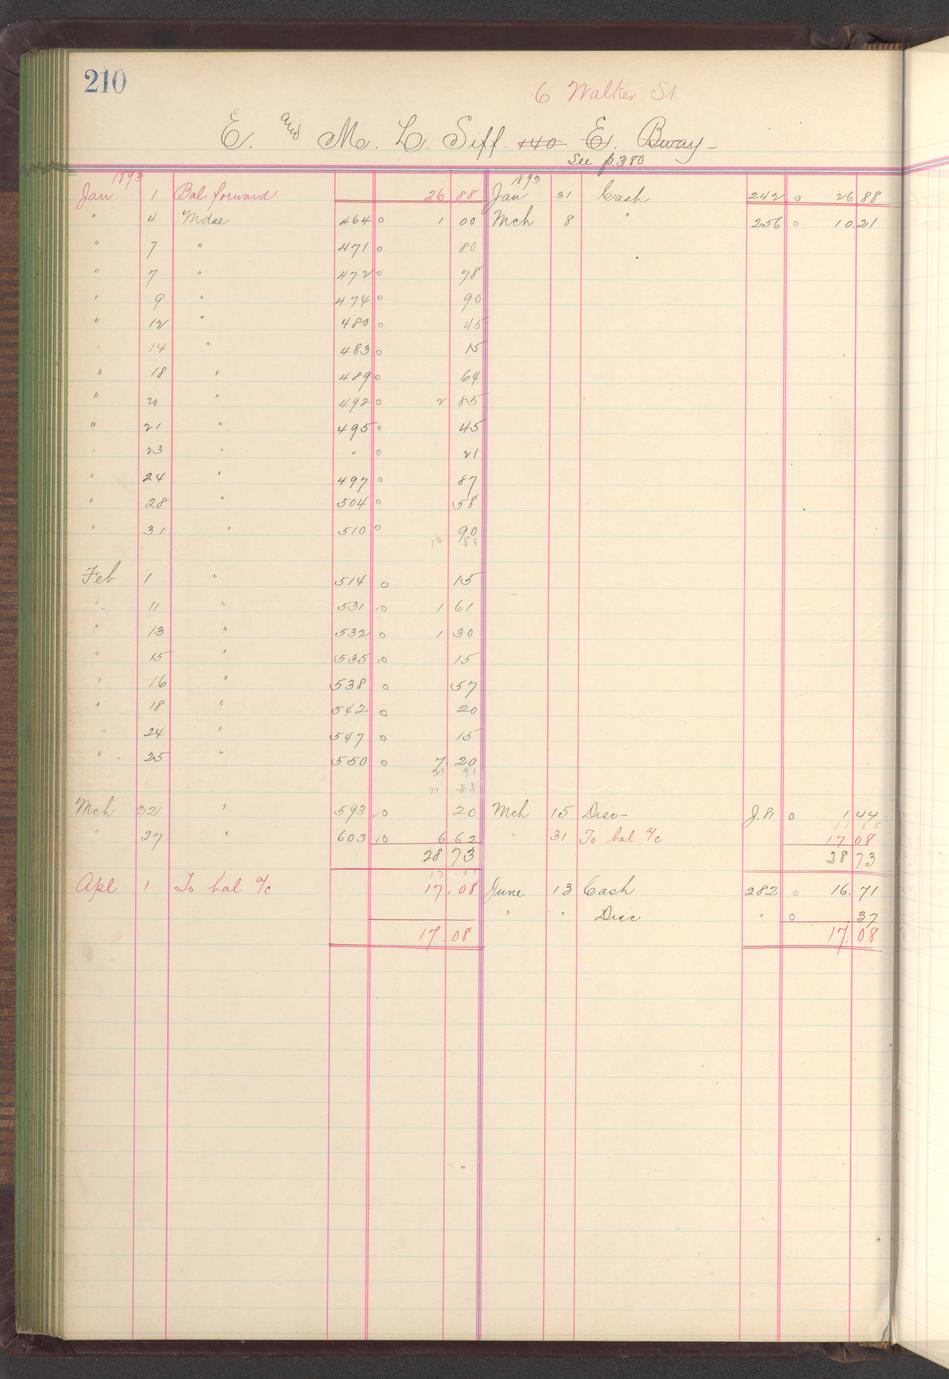 210
6 Walker St
E. and M. L. Siff 140 E. Bway-
See p.380
1893 1893
Jan 1 Bal. forward 26 88 Jan 31 Cash 242 0 26 88
" 4 Mdse 464 0 1 00 Mch 8 " 256 0 10.21
" 7 " 471 0 80
" 7 " 472 0 78
" 9 " 474 0 90
" 12 " 480 0 45
" 14 " 483 0 15
" 18 " 489 0 64
" 20 " 492 0 2 85
" 21 " 495 0 45
" 23 " " 0 21
" 24 " 497 0 87
" 28 " 504 0 58
" 31 " 510 0 90
10 58
Feb 1 " 514 0 15
" 11 " 531 0 1 61
" 13 " 532 0 1 30
" 15 " 535 0 15
" 16 " 538 0 57
" 18 " 542 0 20
" 24 " 547 0 15
" 25 " 550 0 7 20
21 91
11 33
Mch 22 " 593 0 20 Mch 15 Disc- J.8 0 1 44
11 65
" 27 " 603 0 6 62 " 31 To bal a/c 17 08
28 73 28 73
Apl 1 To bal a/c 17.08 June 13 Cash 282 0 16.71
" " Disc " 0 37
17.08 17.08